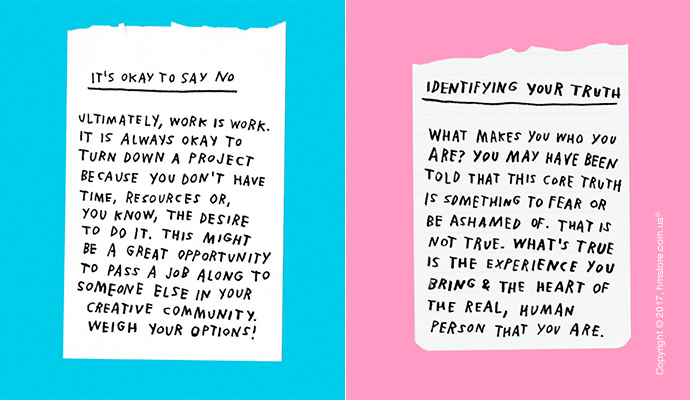 IT'S OKAY TO SAY NO
ULTIMATELY, WORK IS WORK.
IT IS ALWAYS OKAY TO
TURN DOWN A PROJECT
BECAUSE YOU DON'T HAVE
TIME, RESOURCES OR,
YOU KNOW, THE DESIRE
TO DO IT. THIS MIGHT
BE A GREAT OPPORTUNITY
TO PASS A JOB ALONG TO
SOMEONE ELSE IN YOUR
CREATIVE COMMUNITY.
WEIGH YOUR OPTIONS!
IDENTIFYING YOUR TRUTH
WHAT MAKES YOU WHO YOU
ARE? YOU MAY HAVE BEEN
TOLD THAT THIS CORE TRUTH
IS SOMETHING TO FEAR OR
BE ASHAMED OF. THAT IS
NOT TRUE. WHAT'S TRUE
IS THE EXPERIENCE YOU
BRING & THE HEART OF
THE REAL, HUMAN
PERSON THAT YOU ARE.
Copyright © 2017, hmstore.com.ua®